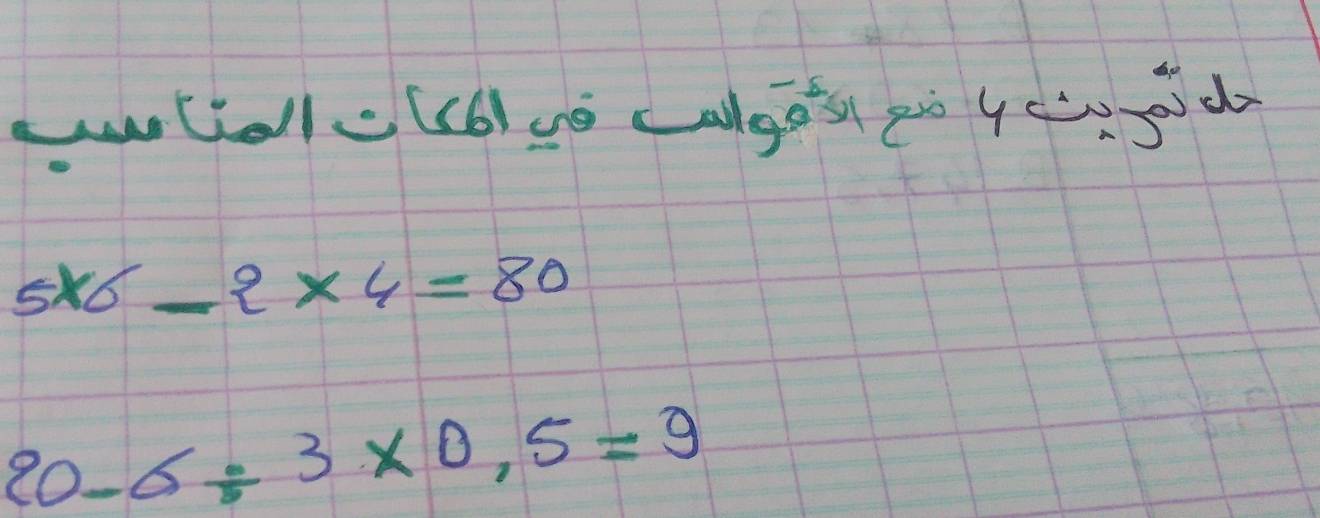 حل تمرين 4 ضع الأقواس في المكان المناسب
5×6 - 2 × 4 = 80
20 - 6 ÷ 3 × 0,5 = 9